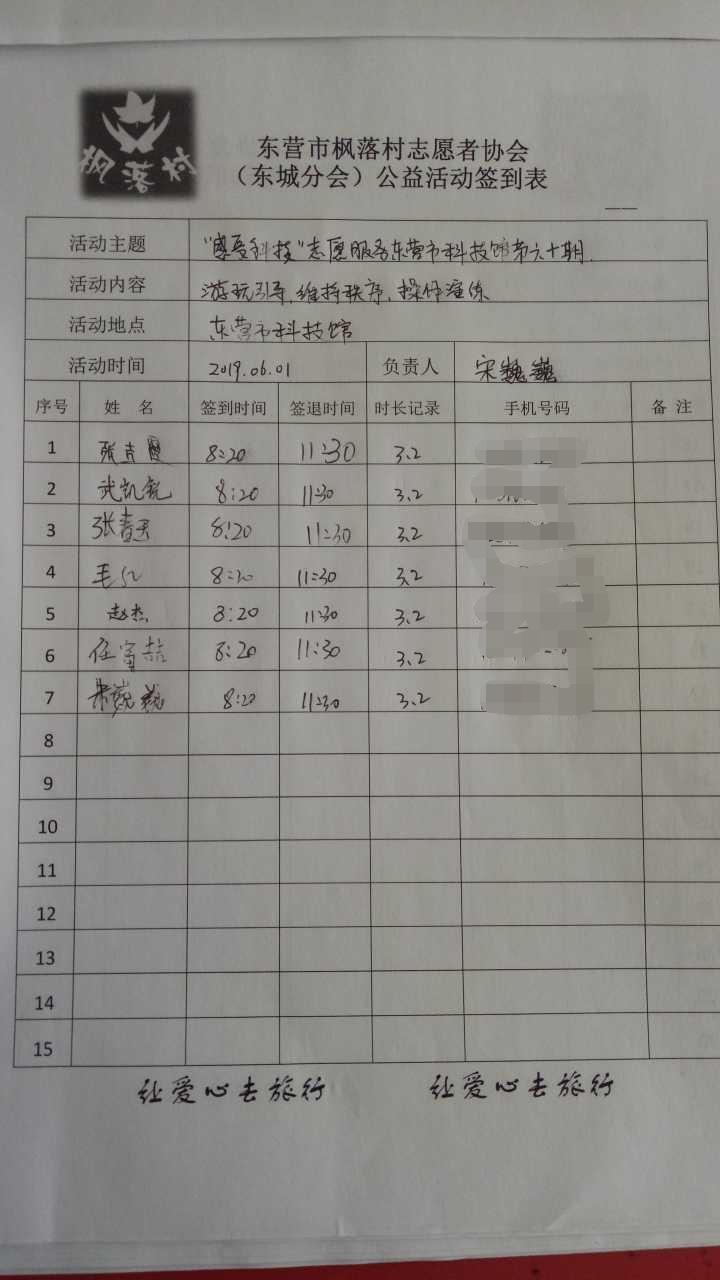 枫落村
东营市枫落村志愿者协会
（东城分会）公益活动签到表
活动主题 "感受科技"志愿服务东营市科技馆第六十期.
活动内容 游玩引导,维持秩序,操作演练
活动地点 东营市科技馆
活动时间 2019.06.01 负责人 宋巍巍
序号 姓 名 签到时间 签退时间 时长记录 手机号码 备 注
1 8:20 11:30 3.2
2 武凯锐 8:20 11:30 3.2
3 张青天 8:20 11:30 3.2
4 毛 8:20 11:30 3.2
5 赵杰 8:20 11:30 3.2
6 任富喆 8:20 11:30 3.2
7 宋巍巍 8:20 11:30 3.2
8
9
10
11
12
13
14
15
让爱心去旅行 让爱心去旅行